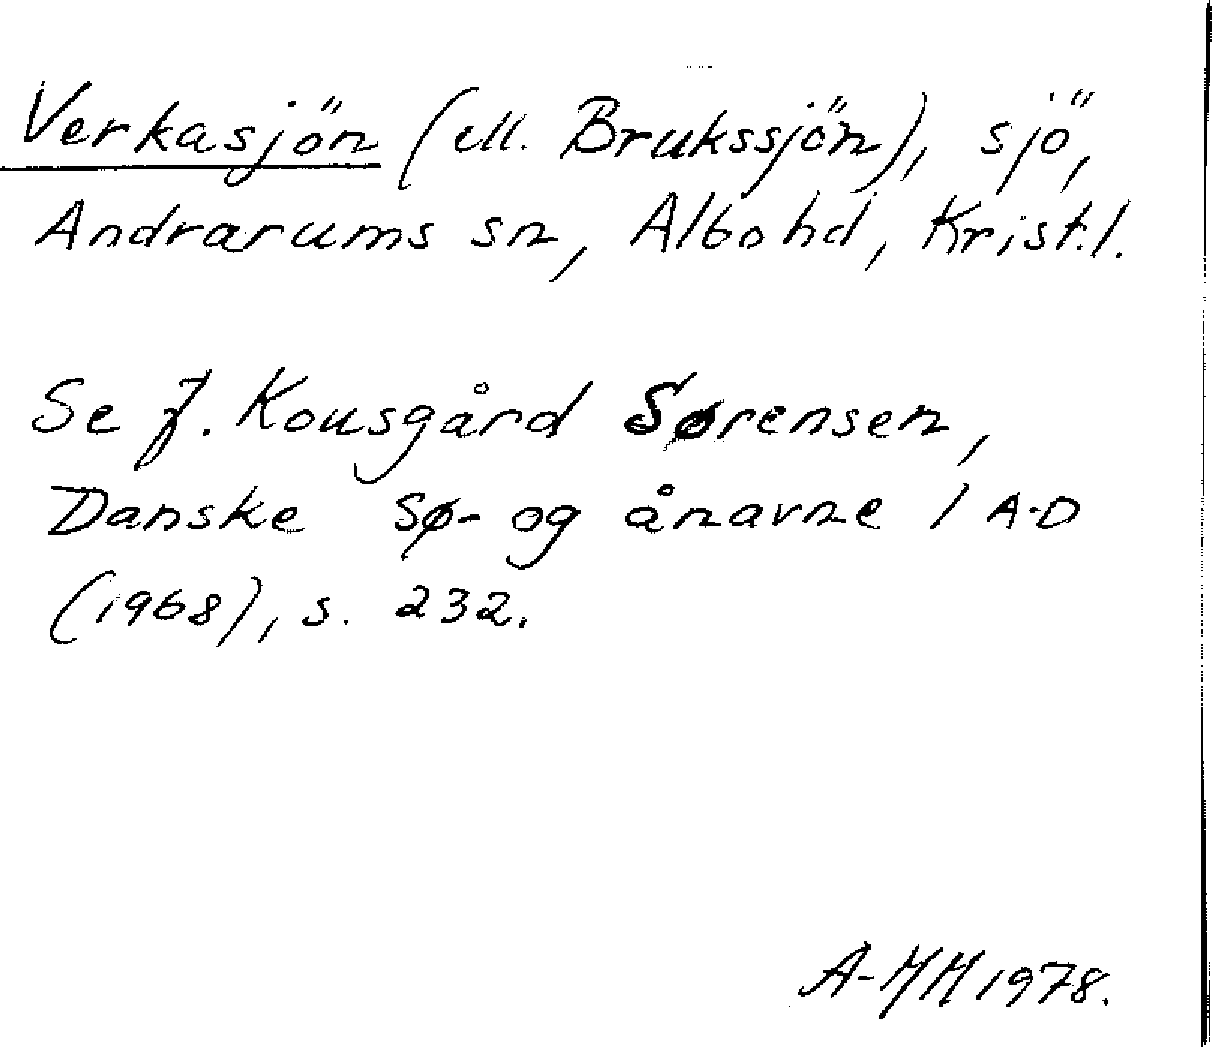 Verkasjön (ell. Brukssjön), sjö,
Andrarums sn, Albo hd, Krist.l.
Se J. Kousgård Sørensen,
Danske sø- og ånavne 1 A-D
(1968), s. 232.
A-MM 1978.